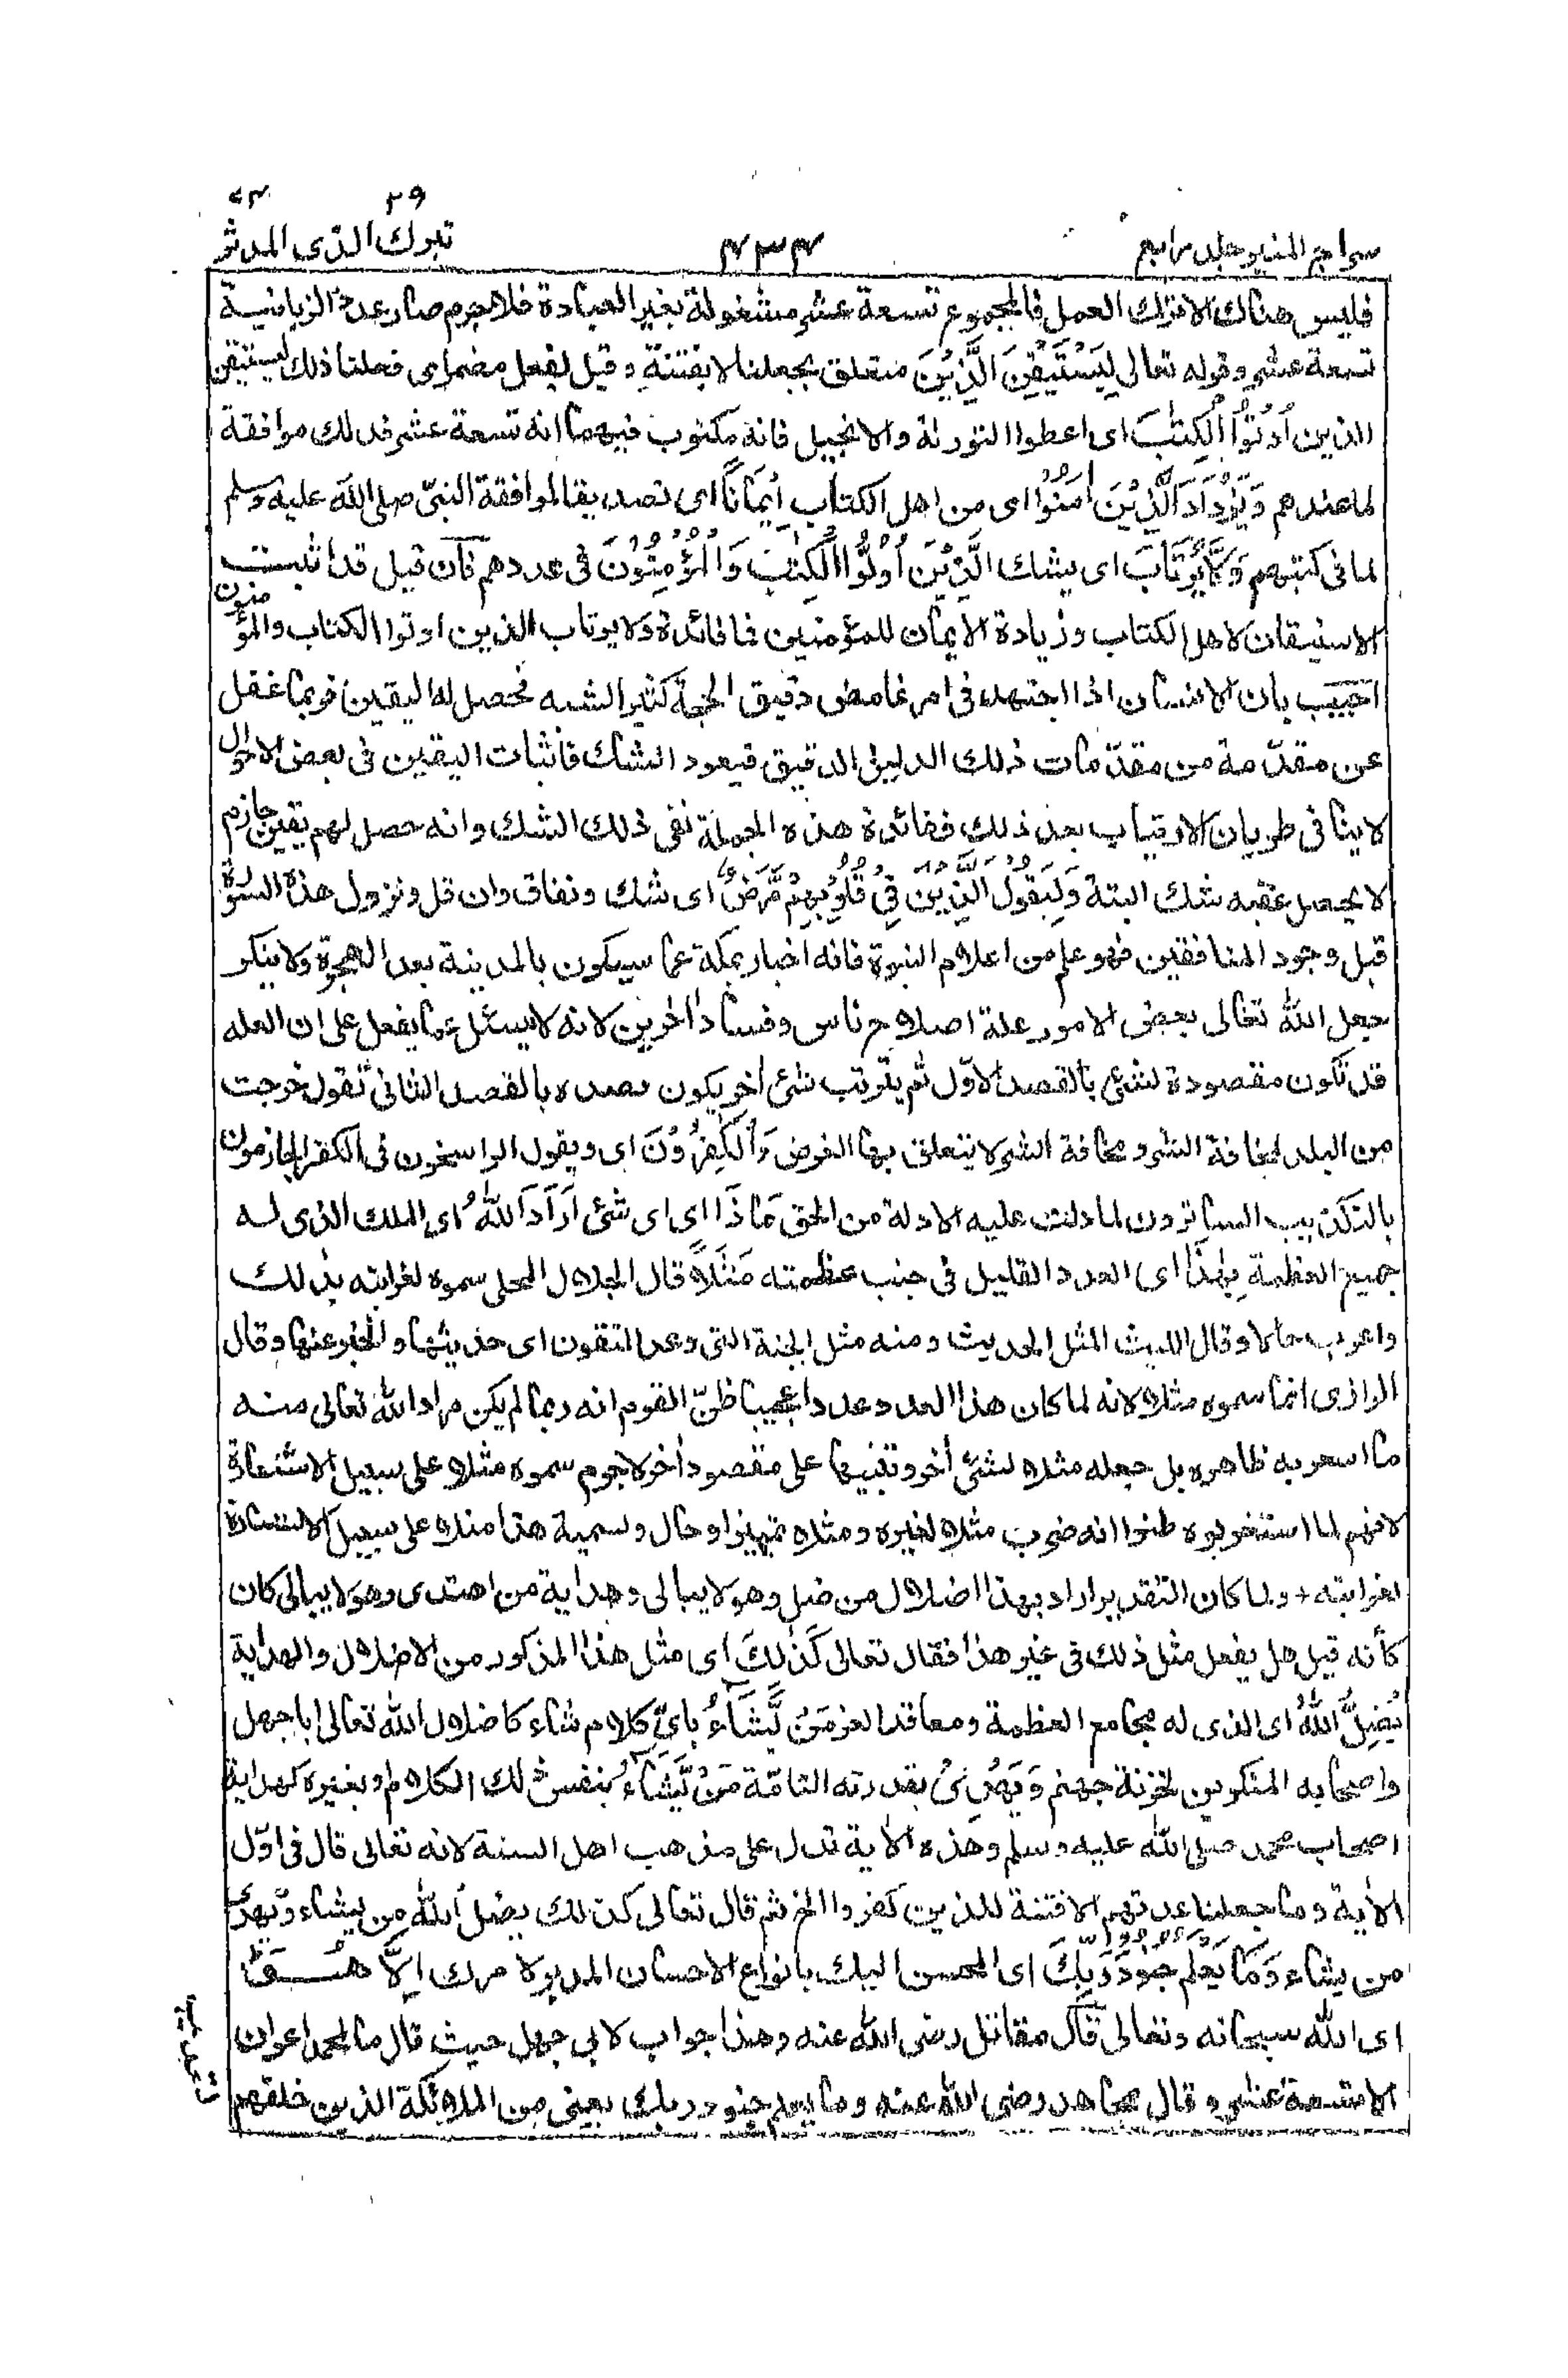 ٢٩
٧٤
سراج المنير جلد رابع
٤٣٤
تبرك الذى المدثر
فليس هناك الا ترك العمل فالمجموع تسعة عشر مشغولة بغير العبادة فلا جرم صار عدد الزبانية
تسعة عشر وقوله تعالى لِيَسْتَيْقِنَ الَّذِيْنَ متعلق بجعلنا لا بفتنة وقيل لفعل مضمر اى فعلنا ذلك ليستيقن
الذين اُوْتُوا الْكِتٰبَ اى اعطوا التورىة والانجيل فانه مكتوب فيهما انه تسعة عشر فذلك موافقة
لما عندهم وَيَزْدَادَ الَّذِيْنَ اٰمَنُوْا اى من اهل الكتاب اِيْمَانًا اى تصديقا لموافقة النبىّ صلى الله عليه وسلم
لما فى كتبهم وَلَا يَرْتَابَ اى يشك الَّذِيْنَ اُوْتُوا الْكِتٰبَ وَالْمُؤْمِنُوْنَ فى عددهم فان قيل قد اثبت
الاستيقان لاهل الكتاب وزيادة الايمان للمؤمنين فما فائدة ولا يرتاب الذين اوتوا الكتاب والمؤمنون
اجيب بان الانسان اذا اجتهد فى امر غامض دقيق الحجة كثير الشبه فحصل له اليقين فربما غفل
عن مقدّمة من مقدّمات ذلك الدليل الدقيق فيعود الشك فاثبات اليقين فى بعض الاحوال
لا ينافى طريان الارتياب بعد ذلك ففائدة هذه الجملة نفى ذلك الشك وانه حصل لهم يقين جازم
لا يحصل عقبه شك البتة وَلِيَقُوْلَ الَّذِيْنَ فِىْ قُلُوْبِهِمْ مَّرَضٌ اى شك ونفاق وان قل ونزول هذه السورة
قبل وجود المنافقين فهو علم من اعلام النبوة فانه اخبار بمكة عما سيكون بالمدينة بعد الهجرة ولا ينكر
جعل الله تعالى بعض الامور علة اصلاح ناس وفساد اٰخرين لانه لا يسئل عما يفعل على ان العله
قد تكون مقصودة لشئ بالقصد الاوّل ثم يترتب شئ اٰخر يكون بالقصد الثانى تقول خرجت
من البلد لمخافة الشر ومخافة الشر لا يتعلق بها الغرض وَالْكٰفِرُوْنَ اى ويقول الراسخون فى الكفر الجازمون
بالتكذيب الساترون لما دلت عليه الادلة من الحق مَاذَا اى اى شئ اَرَادَ اللّٰهُ اى الملك الذى له
جميع العظمة بِهٰذَا اى العدد القليل فى جنب عظمته مَثَلًا قال الجلال المحلى سموه لغرابته بذلك
واعرب حالا وقال الليث المثل الحديث ومنه مثل الجنة التى وعد المتقون اى حديثها والخبر عنها وقال
الرازى انما سموه مثلا لانه لما كان هذا العدد عددا عجيبا ظنّ القوم انه ربما لم يكن مراد الله تعالى منه
ما اشعر به ظاهره بل جعله مثلا لشئ اٰخر وتنبيها على مقصود اٰخر لا جرم سموه مثلا على سبيل الاستعارة
لانهم لما استغربوه ظنوا انه ضرب مثلا لغيره ومثلا تمييز او حال وتسمية هذا مثلا على سبيل الاستعارة
لغرابته + ولما كان التقدير اراد بهذا اضلال من ضل وهو لا يبالى وهداية من اهتدى وهو لا يبالى كان
كأنه قيل هل يفعل مثل ذلك فى غير هذا فقال تعالى كَذٰلِكَ اى مثل هذا المذكور من الاضلال والهداية
يُضِلُّ اللّٰهُ اى الذى له مجامع العظمة ومعاقد العز مَنْ يَّشَآءُ باىّ كلام شاء كاضلال الله تعالى ابا جهل
واصحابه المنكرين لخزنة جهنم وَيَهْدِىْ بقدرته التامّة مَنْ يَّشَآءُ بنفس ذلك الكلام او بغيره كهداية
اصحاب محمد صلى الله عليه وسلم وهذه الاٰية تدل على مذهب اهل السنة لانه تعالى قال فى اوّل
الاٰية وما جعلنا عدتهم الا فتنة للذين كفروا الخ ثم قال تعالى كذلك يضل الله من يشاء ويهدى
من يشاء وَمَا يَعْلَمُ جُنُوْدَ رَبِّكَ اى المحسن اليك بانواع الاحسان المدبر لامرك اِلَّا هُــوَ
اى الله سبحانه وتعالى قال مقاتل رضى الله عنه وهذا جواب لابى جهل حيث قال ما لمحمد اعوان
الا تسعة عشر وقال مجاهد رضى الله عنه وما يعلم جنود ربك يعنى من الملائكة الذين خلقهم